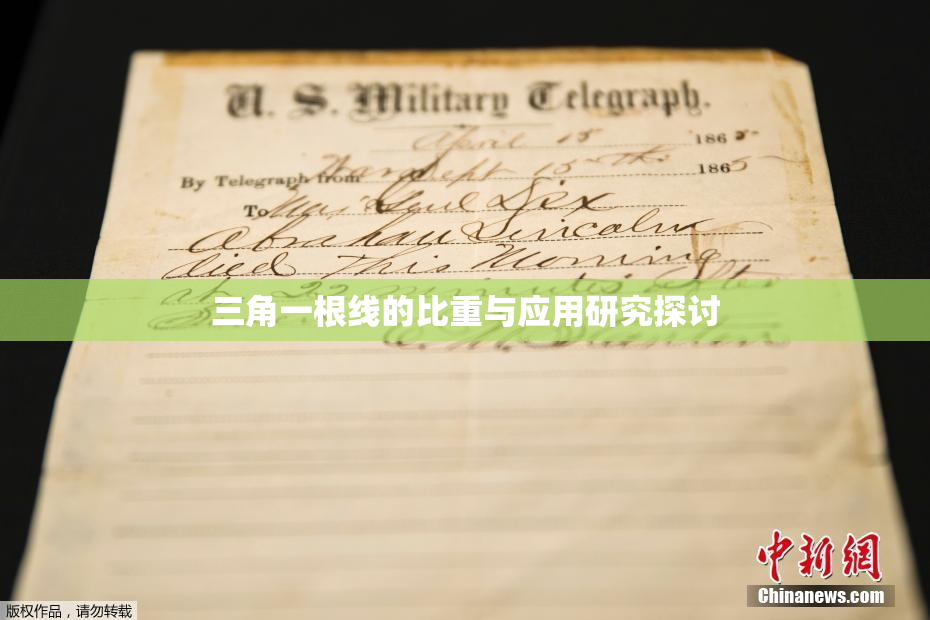 U. S. Military Telegraph.
April 15 1865
By Telegraph from War Dept 15th 1865
To Maj Genl Dix
Abraham Lincoln
died This Morning
at 22 minutes after
三角一根线的比重与应用研究探讨
中新网
Chinanews.com
版权作品，请勿转载